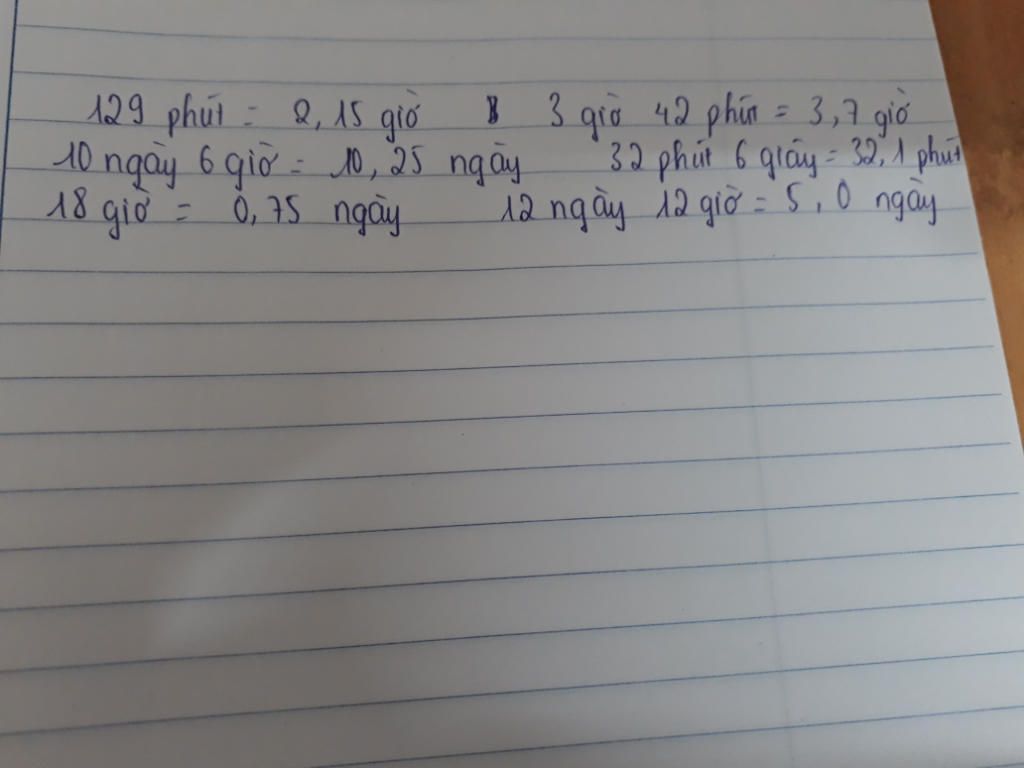 129 phút = 2,15 giờ 3 giờ 42 phút = 3,7 giờ
10 ngày 6 giờ = 10,25 ngày 32 phút 6 giây = 32,1 phút
18 giờ = 0,75 ngày 12 ngày 12 giờ = 5,0 ngày